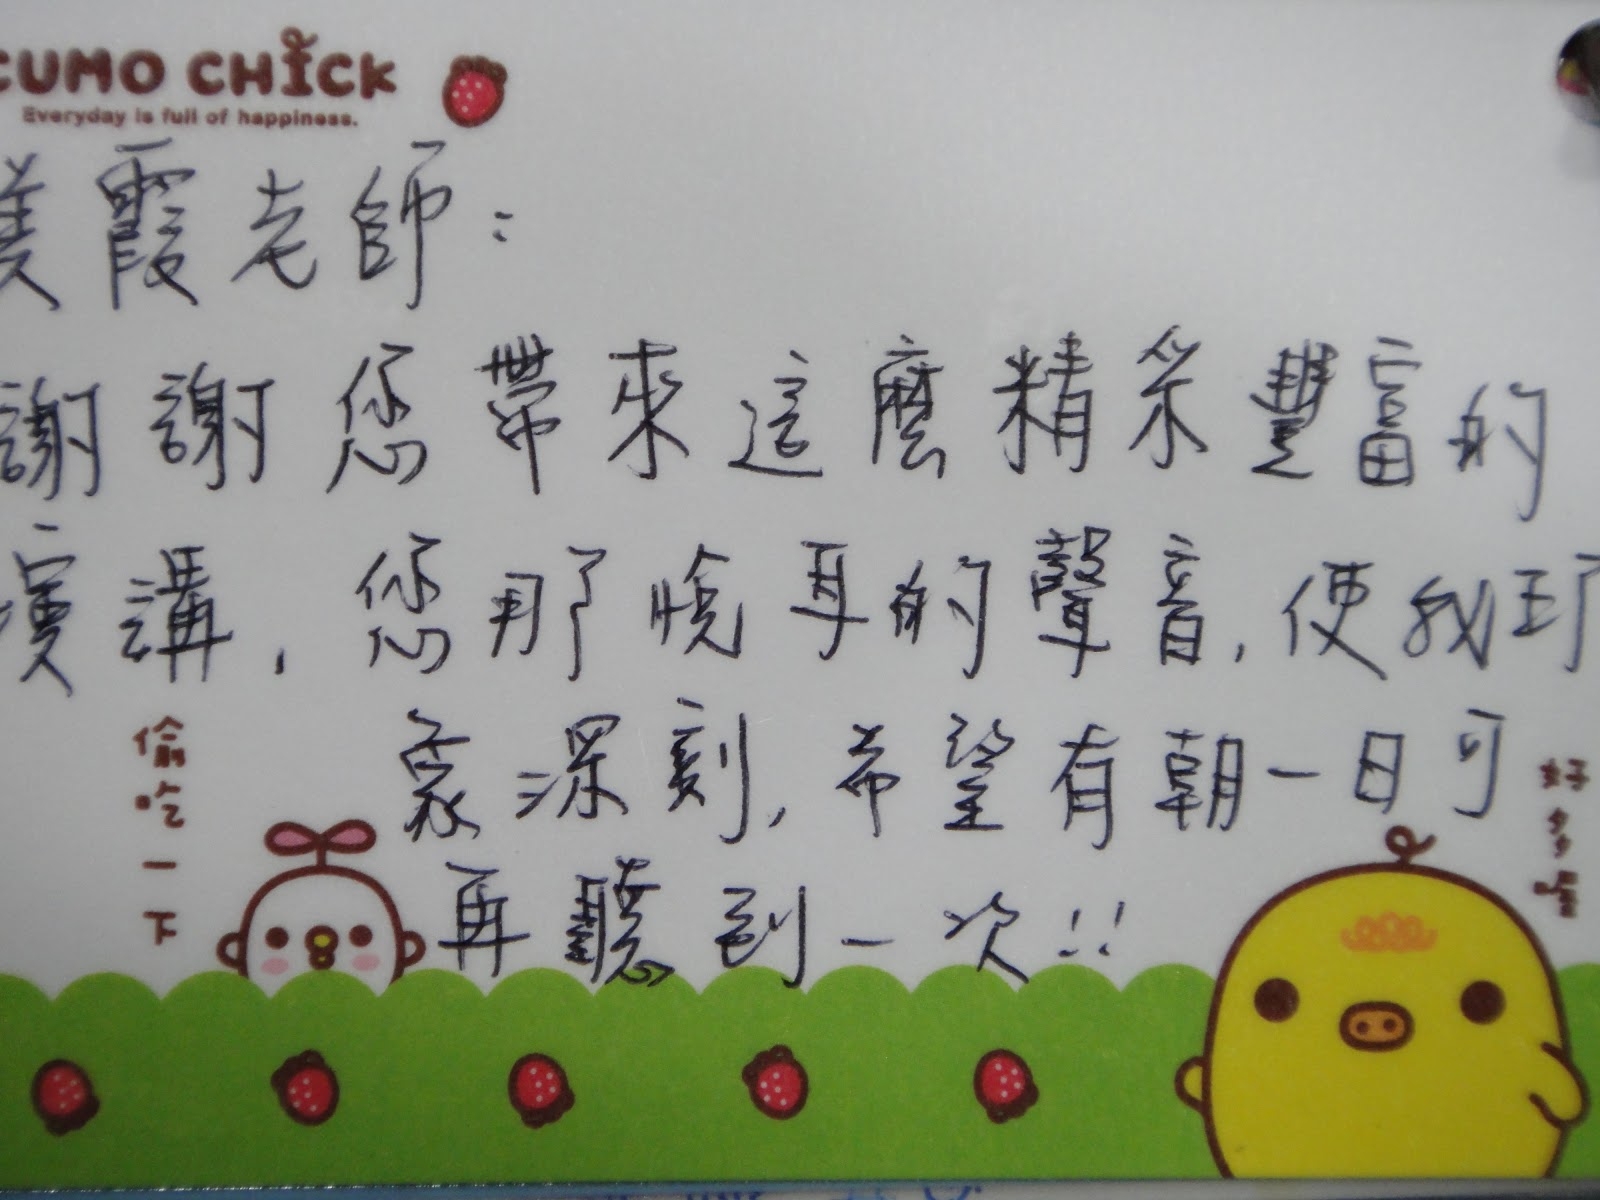 CUMO CHICK
Everyday is full of happiness.
霞老師：
謝謝您帶來這麼精采豐富的
演講，您那悅耳的聲音，使我印
象深刻，希望有朝一日可
再聽到一次!!
偷吃一下
好多